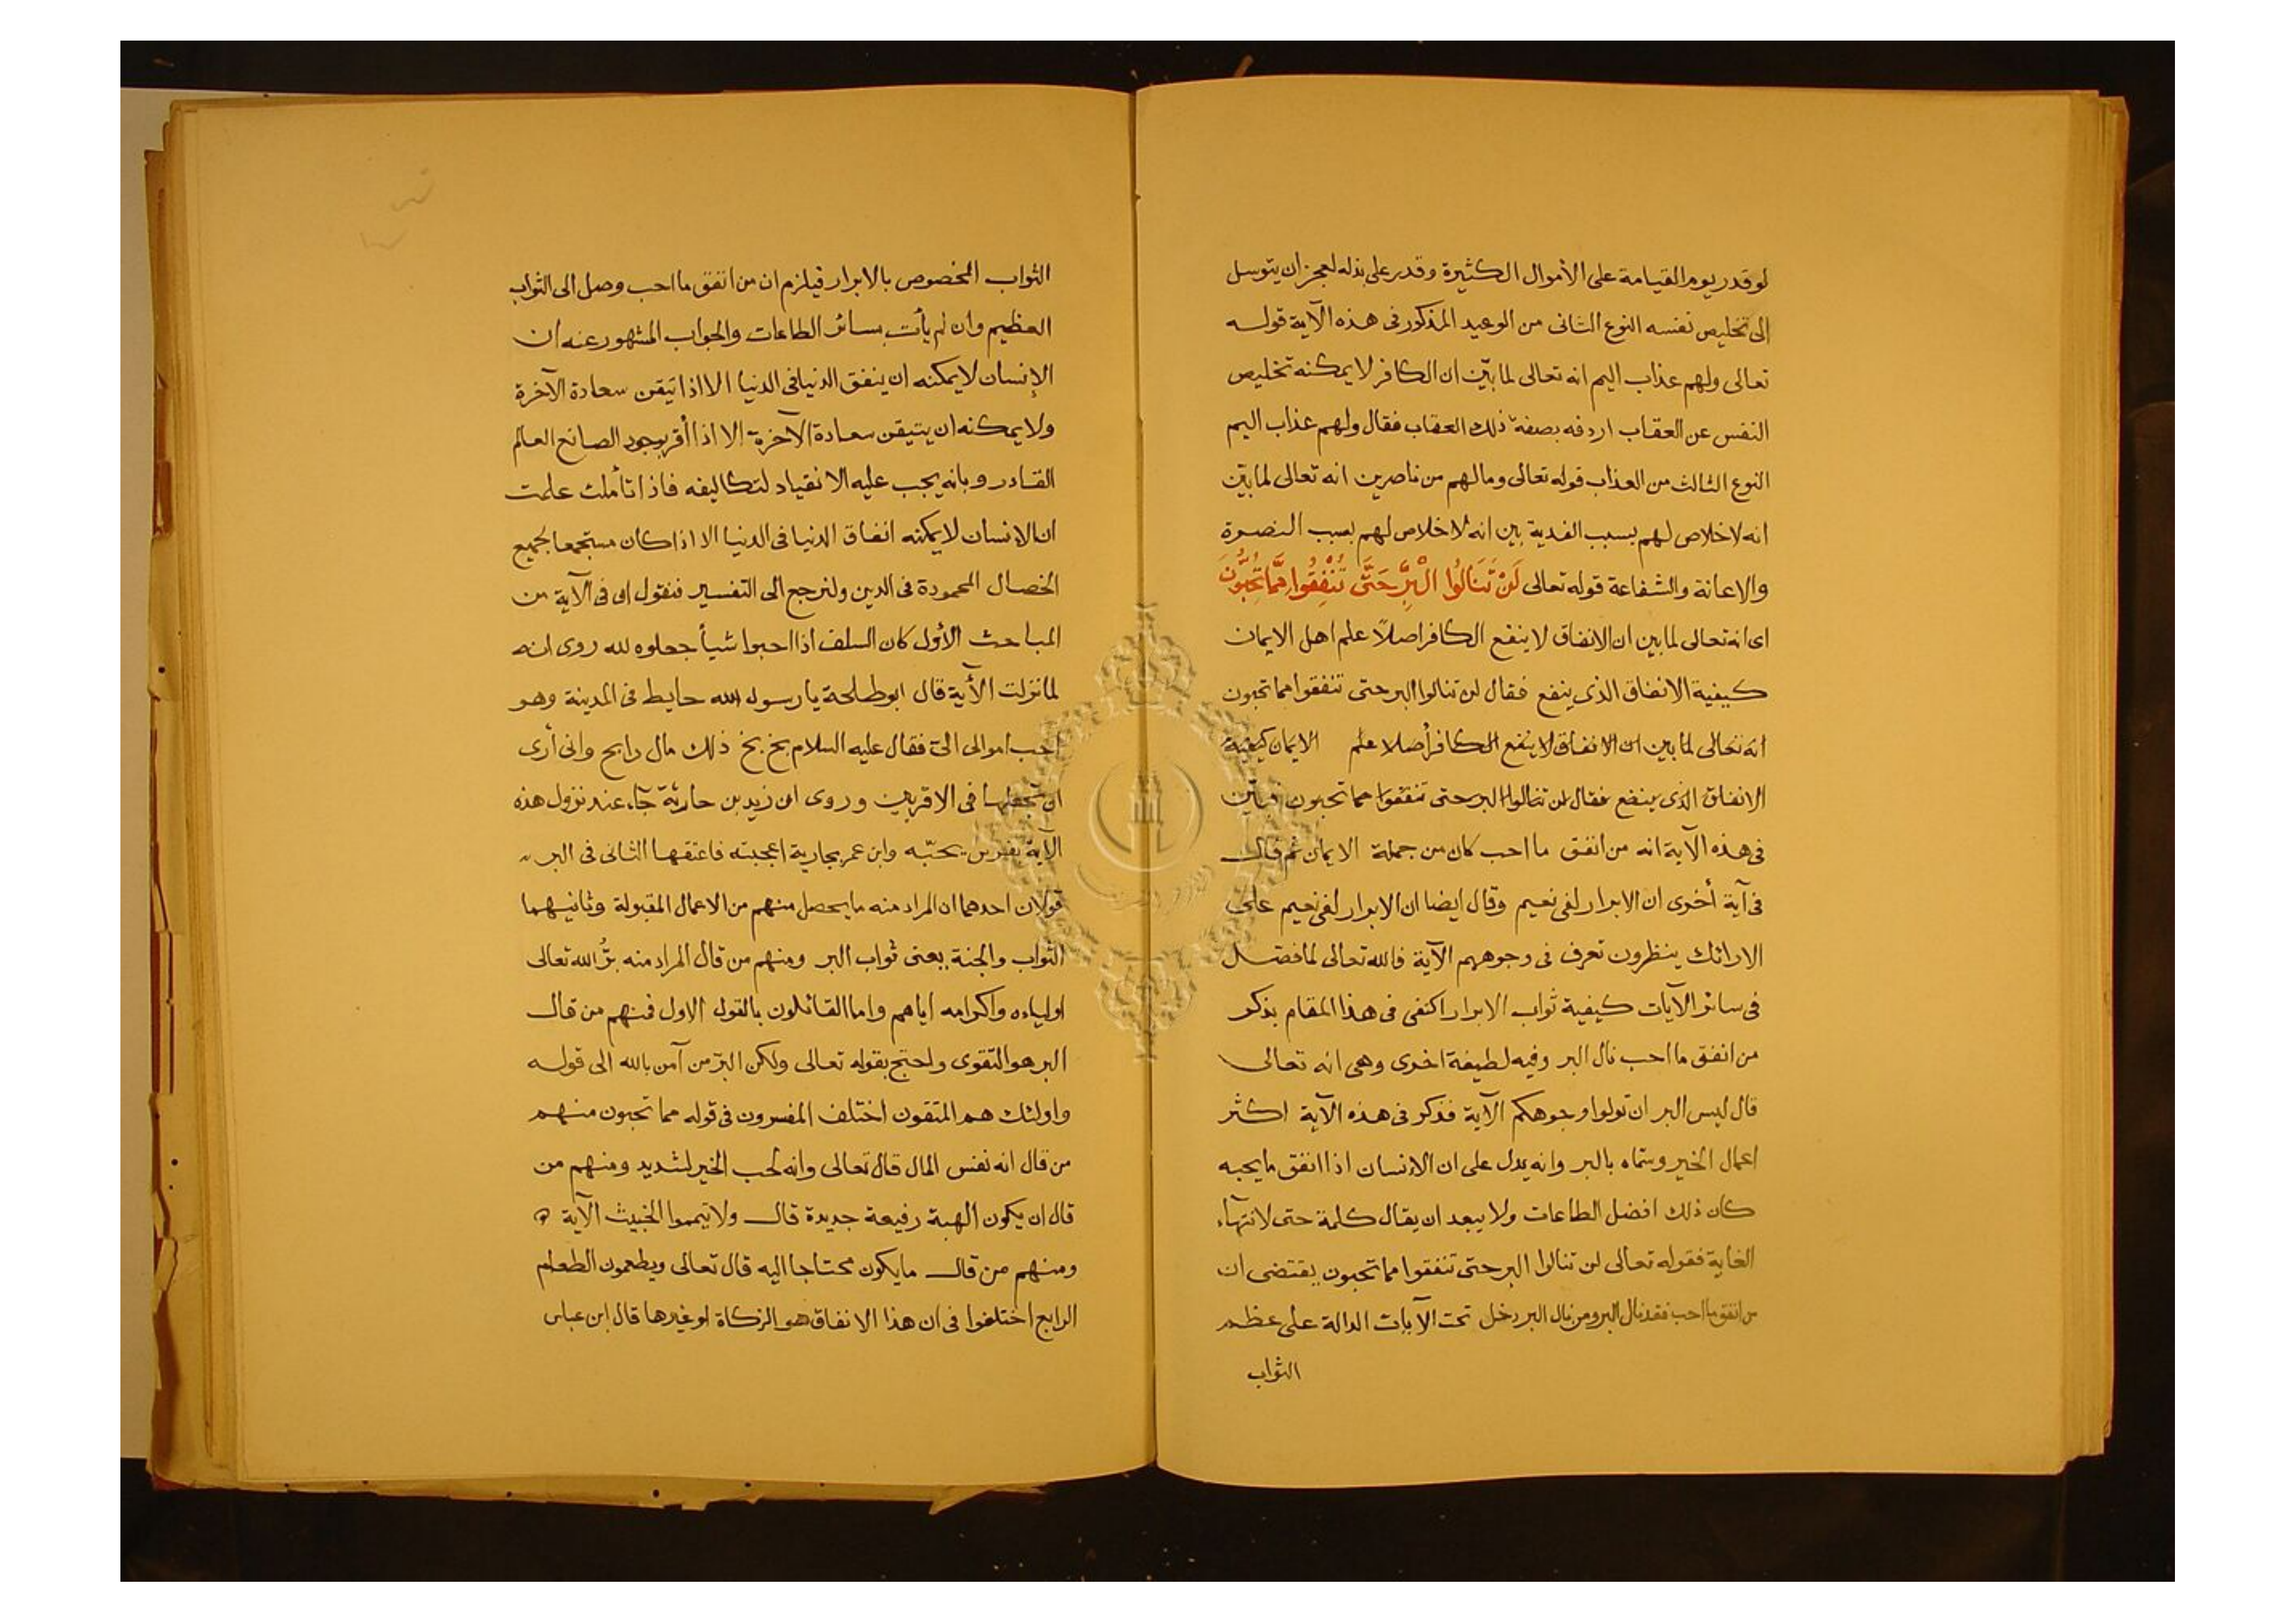 لو قدر يوم القيامة على الأموال الكثيرة وقدر على بذله لعجز ان يتوسل
الى تخليص نفسه النوع الثانى من الوعيد المذكور فى هذه الآية قوله
تعالى ولهم عذاب اليم انه تعالى لما بيّن ان الكافر لا يمكنه تخليص
النفس عن العقاب اردفه بصفة ذلك العقاب فقال ولهم عذاب اليم
النوع الثالث من العذاب قوله تعالى وما لهم من ناصرين انه تعالى لما بيّن
انه لا خلاص لهم بسبب الفدية بين انه لا خلاص لهم بسبب النصرة
والاعانة والشفاعة قوله تعالى لَنْ تَنَالُوا الْبِرَّ حَتَّى تُنْفِقُوا مِمَّا تُحِبُّونَ
اى انه تعالى لما بين ان الانفاق لا ينفع الكافر اصلاً علم اهل الايمان
كيفية الانفاق الذى ينفع فقال لن تنالوا البر حتى تنفقوا مما تحبون
انه تعالى لما بين ان الانفاق لا ينفع الكافر أصلا علم الايمان كيفية
الانفاق الذى ينفع فقال لن تنالوا البر حتى تنفقوا مما تحبون فبيّن
فى هذه الآية انه من انفق ما احب كان من جملة الايمان ثم قال
فى آية أخرى ان الابرار لفى نعيم وقال ايضا ان الابرار لفى نعيم على
الارائك ينظرون تعرف فى وجوههم الآية فالله تعالى لما فضل
فى سائر الآيات كيفية ثواب الابرار اكتفى فى هذا المقام بذكر
من انفق ما احب نال البر وفيه لطيفة اخرى وهى انه تعالى
قال ليس البر ان تولوا وجوهكم الآية فذكر فى هذه الآية اكثر
اعمال الخير وسمّاه بالبر وانه يدل على ان الانسان اذا انفق ما يحبه
كان ذلك افضل الطاعات ولا يبعد ان يقال كلمة حتى لانتهآء
الغاية فقوله تعالى لن تنالوا البر حتى تنفقوا مما تحبون يقتضى ان
من انفق ما احب فقد نال البر ومن نال البر دخل تحت الآيات الدالة على عظم
الثواب
الثواب المخصوص بالابرار فيلزم ان من انفق ما احب وصل الى الثواب
العظيم وان لم يأت بسائر الطاعات والجواب المشهور عنه ان
الإنسان لا يمكنه ان ينفق الدنيا فى الدنيا الا اذا تيقن سعادة الآخرة
ولا يمكنه ان يتيقن سعادة الآخرة الا اذا أقر بوجود الصانع العالم
القادر وبانه يجب عليه الانقياد لتكاليفه فاذا تأملت علمت
ان الانسان لا يمكنه انفاق الدنيا فى الدنيا الا اذا كان مستجمعا لجميع
الخصال المحمودة فى الدين ولنرجع الى التفسير فنقول ان فى الآية من
المباحث الأول كان السلف اذا احبوا شيأ جعلوه لله روى انه
لما نزلت الأية قال ابو طلحة يا رسول الله حايط فى المدينة وهو
احب اموالى الىّ فقال عليه السلام بخ بخ ذلك مال رابح وانى أرى
ان تجعلها فى الاقربين وروى ان زيد بن حارثة جآء عند نزول هذه
الآية بفرس يحبّه وابن عمر بجارية اعجبته فاعتقها الثانى فى البر
قولان احدهما ان المراد منه ما يحصل منهم من الاعمال المقبولة وثانيهما
الثواب والجنة يعنى ثواب البر ومنهم من قال المراد منه برُّ الله تعالى
اولياءه واكرامه اياهم واما القائلون بالقول الاول فمنهم من قال
البر هو التقوى واحتج بقوله تعالى ولكن البرّ من آمن بالله الى قوله
واولئك هم المتقون اختلف المفسرون فى قوله مما تحبون منهم
من قال انه نفس المال قال تعالى وانه لحب الخير لشديد ومنهم من
قال ان يكون الهبة رفيعة جديدة قال ولا تيمموا الخبيث الآية
ومنهم من قال ما يكون محتاجا اليه قال تعالى ويطعمون الطعام
الرابع اختلفوا فى ان هذا الانفاق هو الزكاة او غيرها قال ابن عباس